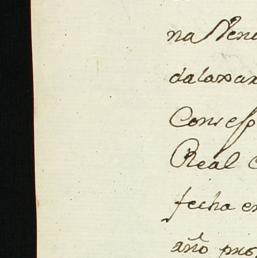 na Nene
dalaxax
Concess
Real C
fecha en
año pro